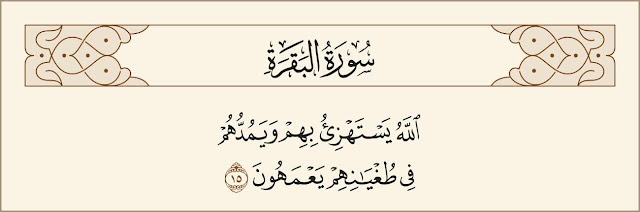 سُورَةُ البَقَرَةِ
ٱللَّهُ يَسْتَهْزِئُ بِهِمْ وَيَمُدُّهُمْ
فِي طُغْيَـٰنِهِمْ يَعْمَهُونَ ١٥